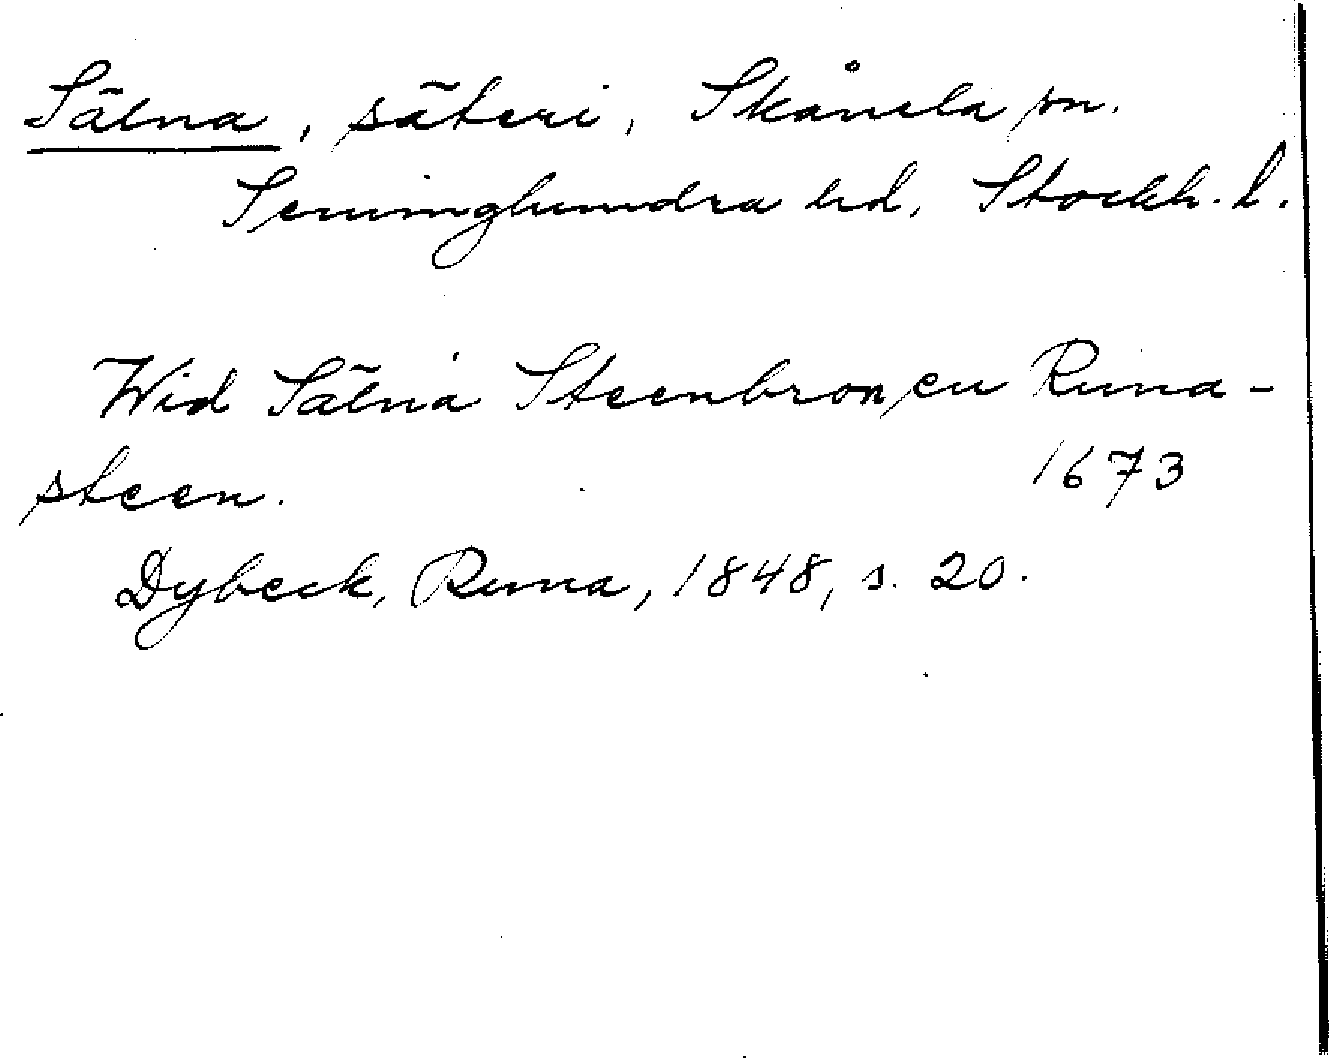 Sälna, säteri, Skånela sn.
Seminghundra hd, Stockh. l.
Wid Sälna Steenbron, en Runa-
steen. 1673
Dybeck, Runa, 1848, s. 20.